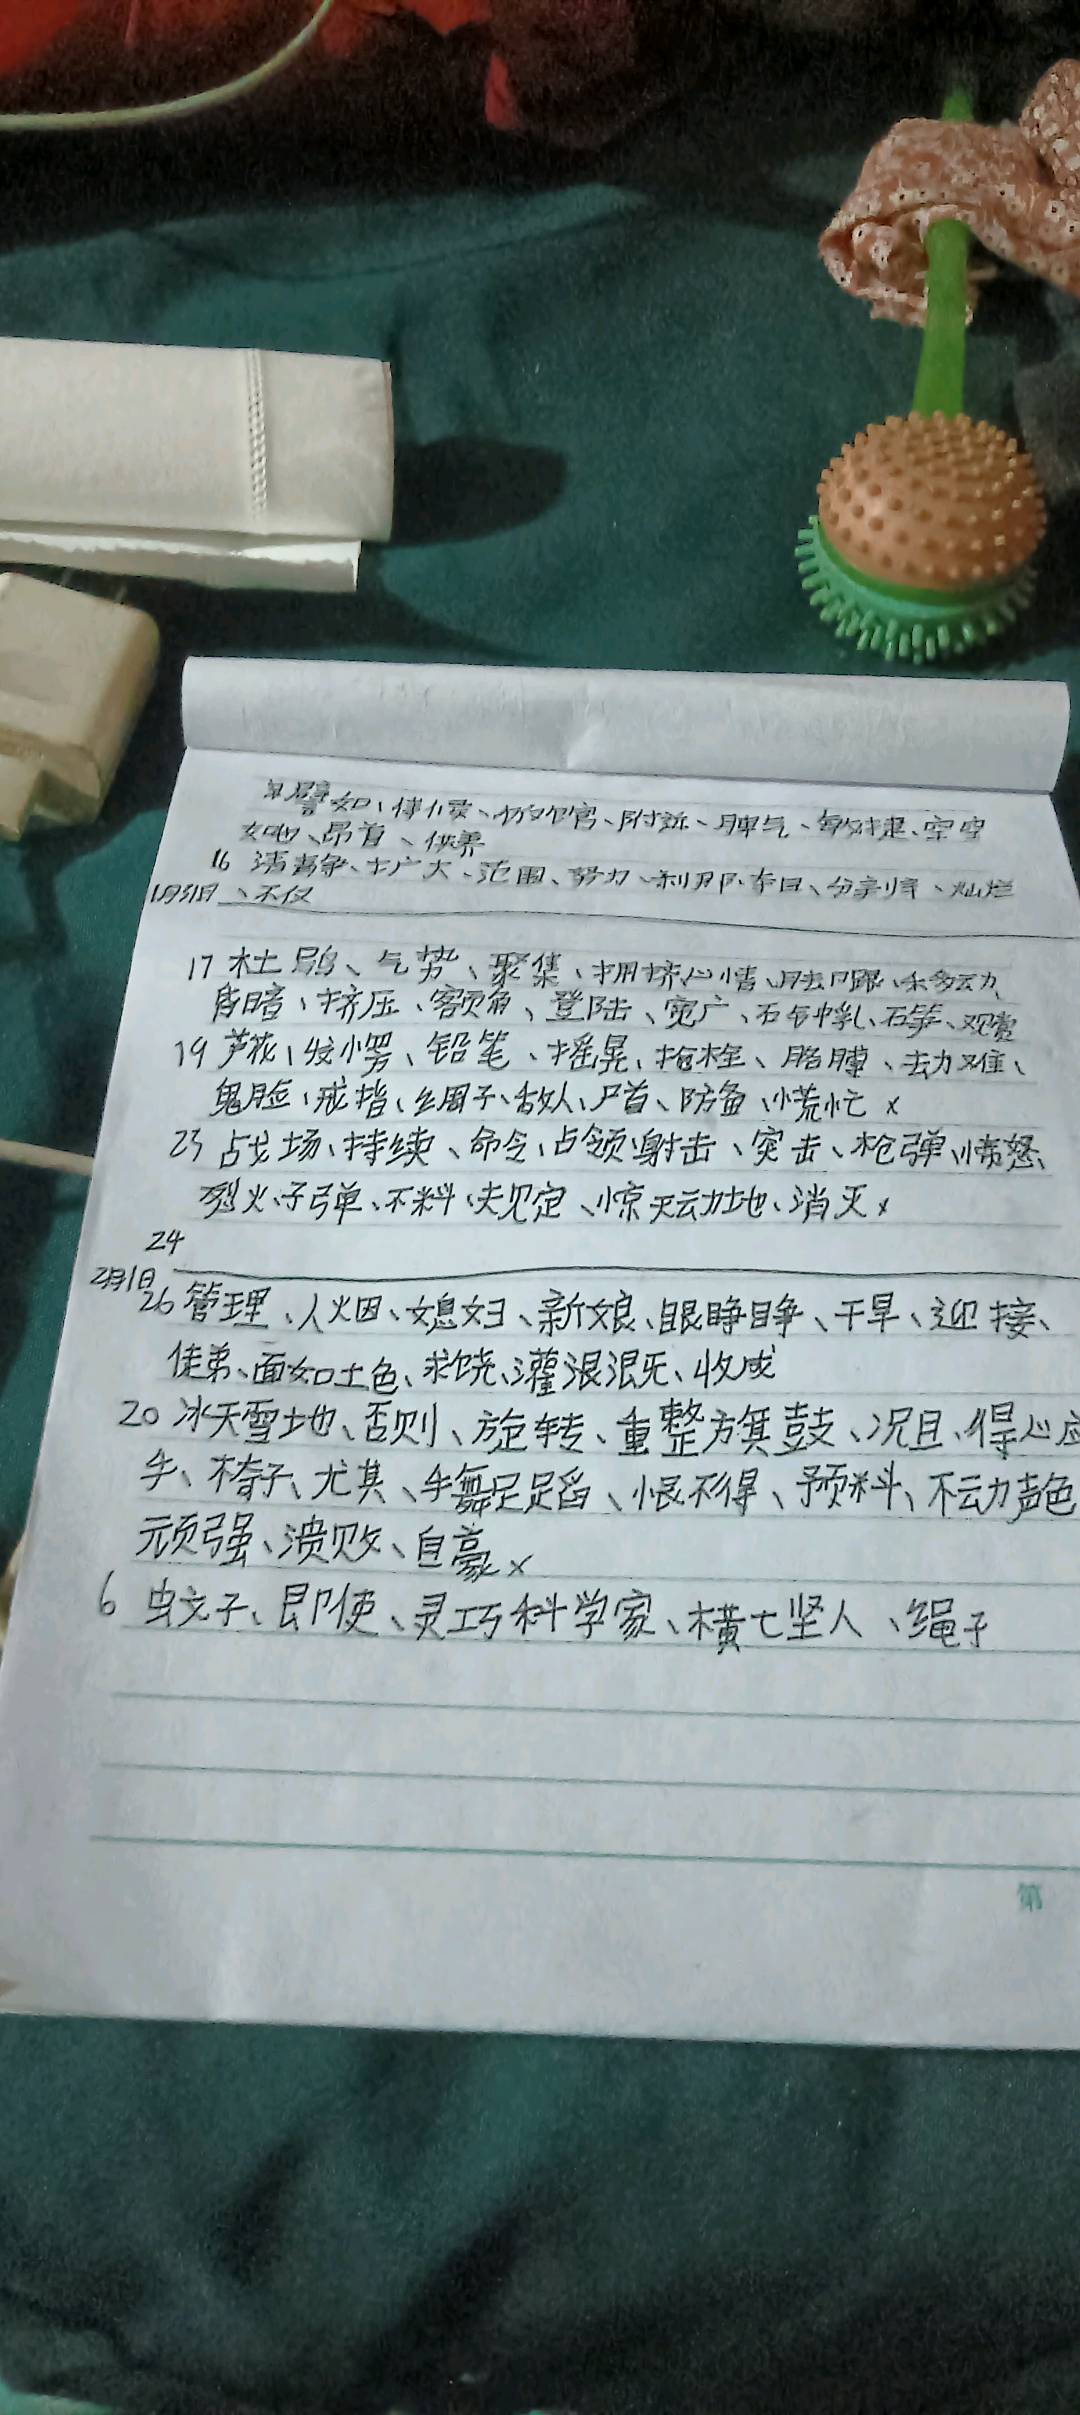 譬如、伺候、彷如官、附近、脾气、敏捷、空空
如也、昂首、供养
16 清静、扩大、范围、努力、刹那、夺目、分享、灿烂
1月31日 、不仅
17 杜鹃、气势、聚集、拥挤、心情、脚跟、移动、
昏暗、挤压、额角、登陆、宽广、石钟乳、石笋、观赏
19 芦花、发愣、铅笔、摇晃、枪栓、胳膊、劫难、
鬼脸、戒指、绸子、敌人、尸首、防备、慌忙 x
23 战场、持续、命令、占领、射击、突击、枪弹、愤怒、
烈火、子弹、不料、决定、惊天动地、消灭 x
24
2月1日
26 管理、人烟、媳妇、新娘、眼睁睁、干旱、迎接、
徒弟、面如土色、求饶、灌溉、泥、收成
20 冰天雪地、否则、旋转、重整旗鼓、况且、得心应
手、椅子、尤其、手舞足蹈、恨不得、预料、不动声色
顽强、溃败、自豪 x
6 蚊子、即使、灵巧、科学家、横七竖八、绳子
第